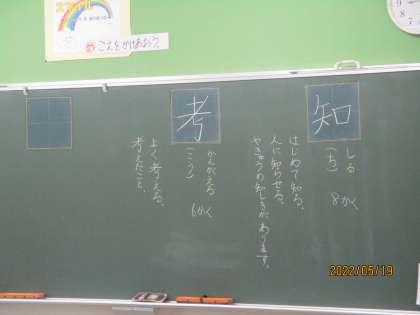 こえをかけあおう
知
しる
(ち)
8かく
はじめて知る。
人に知らせる。
やきゅうの知しきがあります。
考
かんがえる
(こう)
6かく
よく考える。
考えたこと。
2022/05/19